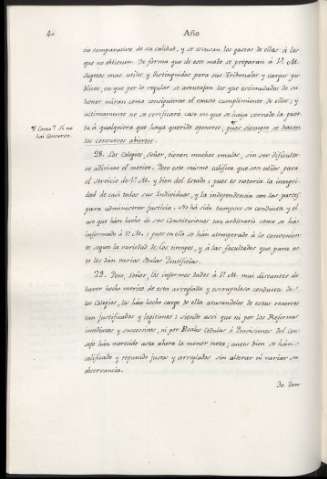 40 Año
cio comparativo de su calidad, y se escusan los gastos de ellas á los
que no obtienen. De forma que de este modo se preparan á V. M.
sugetos mas utiles y distinguidos para sus Tribunales y cargos pu-
blicos, en que por lo regular se acreditan los que estimulados de su
honor miran como consiguiente el exacto cumplimiento de ellos; y
ultimamente no se verificará caso en que se haya cerrado la puer-
ta á qualquiera que haya querido oponerse, pues siempre se hacen
los concursos abiertos.
¶ Como? Si no
hai Concurso.
28. Los Colegios, Señor, tienen muchos emulos, sin ser dificulto-
so adivinar el motivo. Pero este mismo califica que son utiles para
el servicio de V. M. y bien del Estado; pues es notoria la integri-
dad de casi todos sus Individuos, y la independencia con las partes
para administrar justicia. No há sido tampoco su conducta y el
uso que han hecho de sus Constituciones tan arbitrario como se hás
informado á V. M.; pues en ella se han atemperado á lo convenien-
te segun la variedad de los tiempos, y á las facultades que para es-
to les dan varias Bulas Pontificias.
29. Pero, Señor, los informes dados á V. M. mui distantes de
haver hecho merito de esta arreglada y escrupulosa conducta de
los Colegios, les hán hecho cargo de ella acusandolos de estas reservas
tan justificadas y legitimas; siendo assi que ni por las Reformas
anteriores y succesivas, ni por Reales Cedulas ó Provisiones del Con-
sejo hán merecido acta ahora la menor nota; antes bien se hán
calificado y reputado justas y arregladas sin alterar ni variar su
observancia.
De don